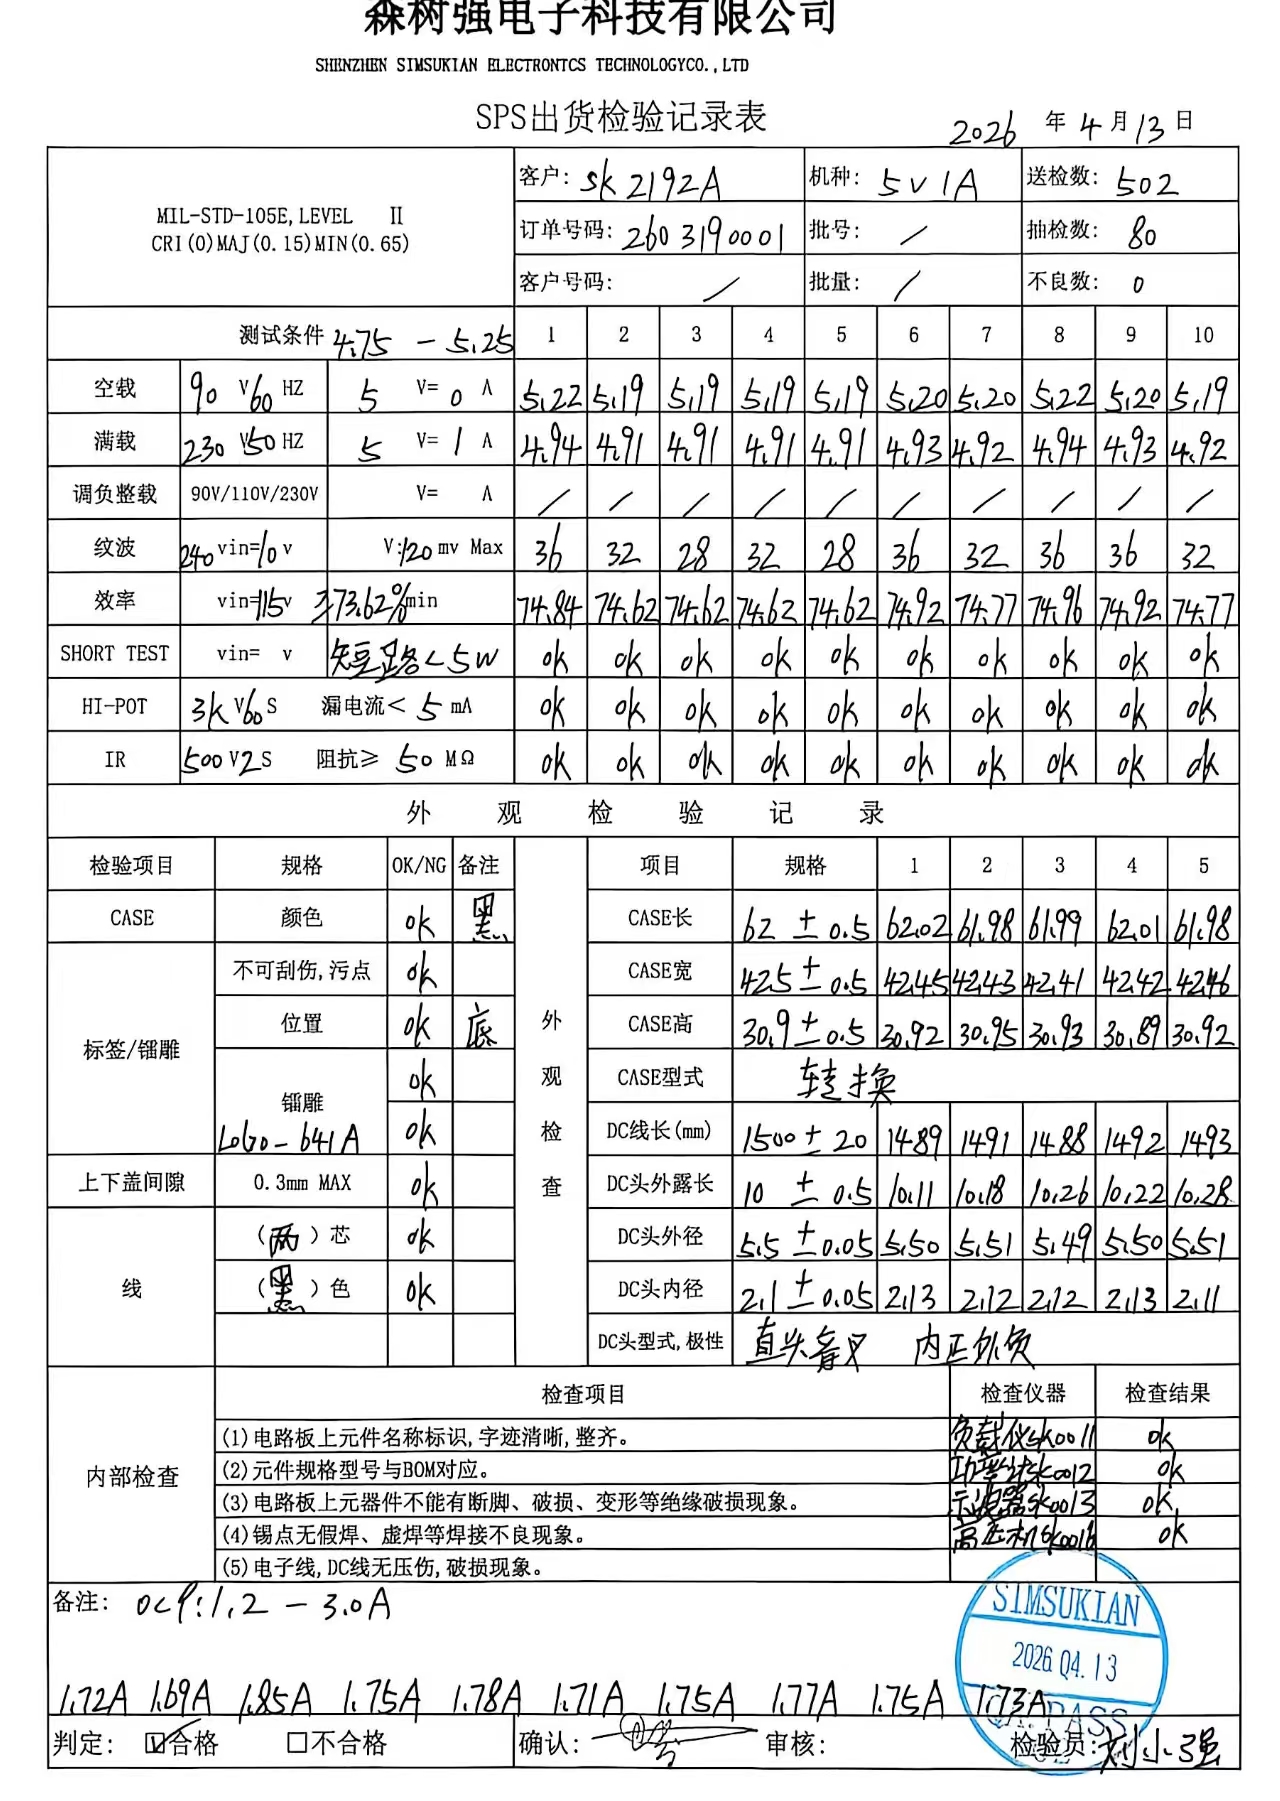 森树强电子科技有限公司
SHENZHEN SIMSUKIAN ELECTRONTCS TECHNOLOGYCO.,LTD
SPS出货检验记录表
2026 年 4 月 13 日
MIL-STD-105E,LEVEL Ⅱ
CRI(0)MAJ(0.15)MIN(0.65)
客户: SK2192A 机种: 5V1A 送检数: 502
订单号码: 2603190001 批号: / 抽检数: 80
客户号码: / 批量: / 不良数: 0
测试条件 4.75 - 5.25 1 2 3 4 5 6 7 8 9 10
空载 90 V 60 HZ 5 V= 0 A 5.22 5.19 5.19 5.19 5.19 5.20 5.20 5.22 5.20 5.19
满载 230 V 50 HZ 5 V= 1 A 4.94 4.91 4.91 4.91 4.91 4.93 4.92 4.94 4.93 4.92
调负整载 90V/110V/230V V= A / / / / / / / / / /
纹波 240 vin=10 v V:120 mv Max 36 32 28 32 28 36 32 36 36 32
效率 vin=115v ≥73.62%min 74.84 74.62 74.62 74.62 74.62 74.92 74.77 74.96 74.92 74.77
SHORT TEST vin= v 短路<5W ok ok ok ok ok ok ok ok ok ok
HI-POT 3K V 60 S 漏电流< 5 mA ok ok ok ok ok ok ok ok ok ok
IR 500 V 2 S 阻抗≥ 50 MΩ ok ok ok ok ok ok ok ok ok ok
外观检验记录
检验项目 规格 OK/NG 备注 项目 规格 1 2 3 4 5
CASE 颜色 ok 黑 CASE长 62 ± 0.5 62.02 61.98 61.99 62.01 61.98
标签/镭雕 不可刮伤,污点 ok CASE宽 42.5 ± 0.5 42.45 42.43 42.41 42.42 42.46
位置 ok 底 CASE高 30.9 ± 0.5 30.92 30.95 30.93 30.89 30.92
外观检查
镭雕 ok CASE型式 转换
LOGO-641A ok DC线长(mm) 1500 ± 20 1489 1491 1488 1492 1493
上下盖间隙 0.3mm MAX ok DC头外露长 10 ± 0.5 10.11 10.18 10.26 10.22 10.28
线 (两)芯 ok DC头外径 5.5 ± 0.05 5.50 5.51 5.49 5.50 5.51
(黑)色 ok DC头内径 2.1 ± 0.05 2.13 2.12 2.12 2.13 2.11
DC头型式,极性 直头音叉 内正外负
内部检查 检查项目 检查仪器 检查结果
(1)电路板上元件名称标识,字迹清晰,整齐。 负载仪SK0011 ok
(2)元件规格型号与BOM对应。 功率计SK0012 ok
(3)电路板上元器件不能有断脚、破损、变形等绝缘破损现象。 示波器SK0013 ok
(4)锡点无假焊、虚焊等焊接不良现象。 高压机SK0016 ok
(5)电子线,DC线无压伤,破损现象。
备注: OCP:1.2 - 3.0A
SIMSUKIAN
2026.04.13
1.72A 1.69A 1.85A 1.75A 1.78A 1.71A 1.75A 1.77A 1.75A 1.73A
PASS
判定: ☑合格 □不合格 确认: 审核: 检验员:刘小强